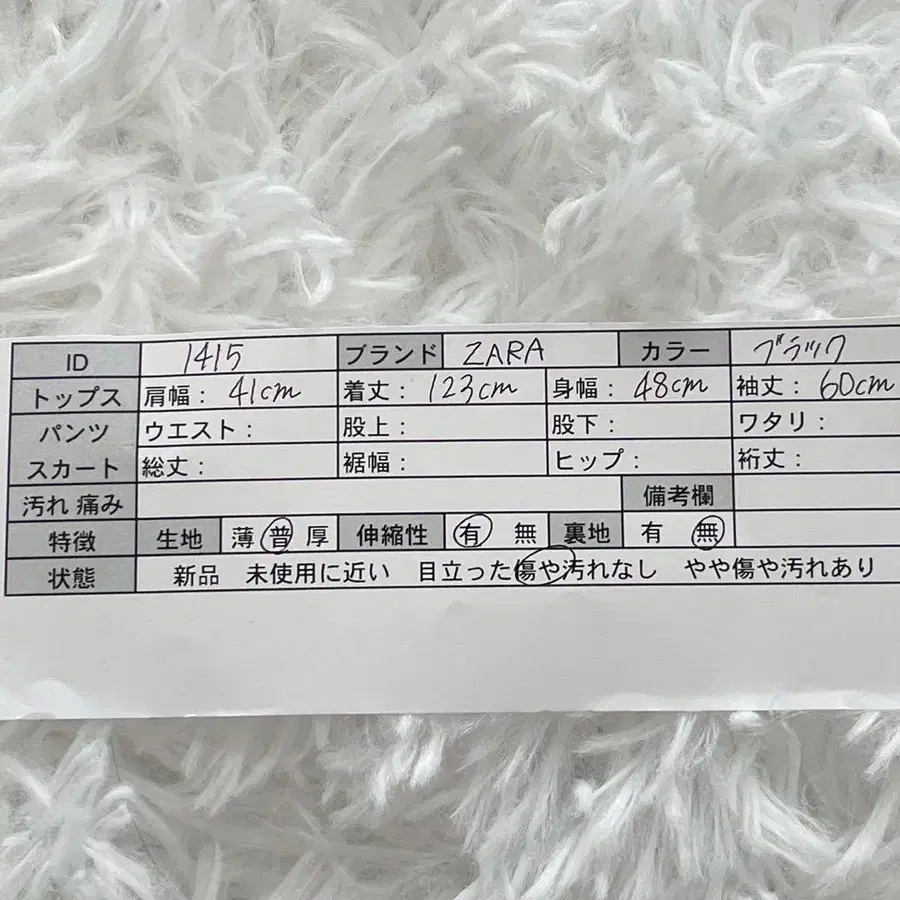 ID 1415 ブランド ZARA カラー ブラック
トップス 肩幅: 41cm 着丈: 123cm 身幅: 48cm 袖丈: 60cm
パンツ ウエスト: 股上: 股下: ワタリ:
スカート 総丈: 裾幅: ヒップ: 裄丈:
汚れ 痛み 備考欄
特徴 生地 薄 普 厚 伸縮性 有 無 裏地 有 無
状態 新品 未使用に近い 目立った傷や汚れなし やや傷や汚れあり